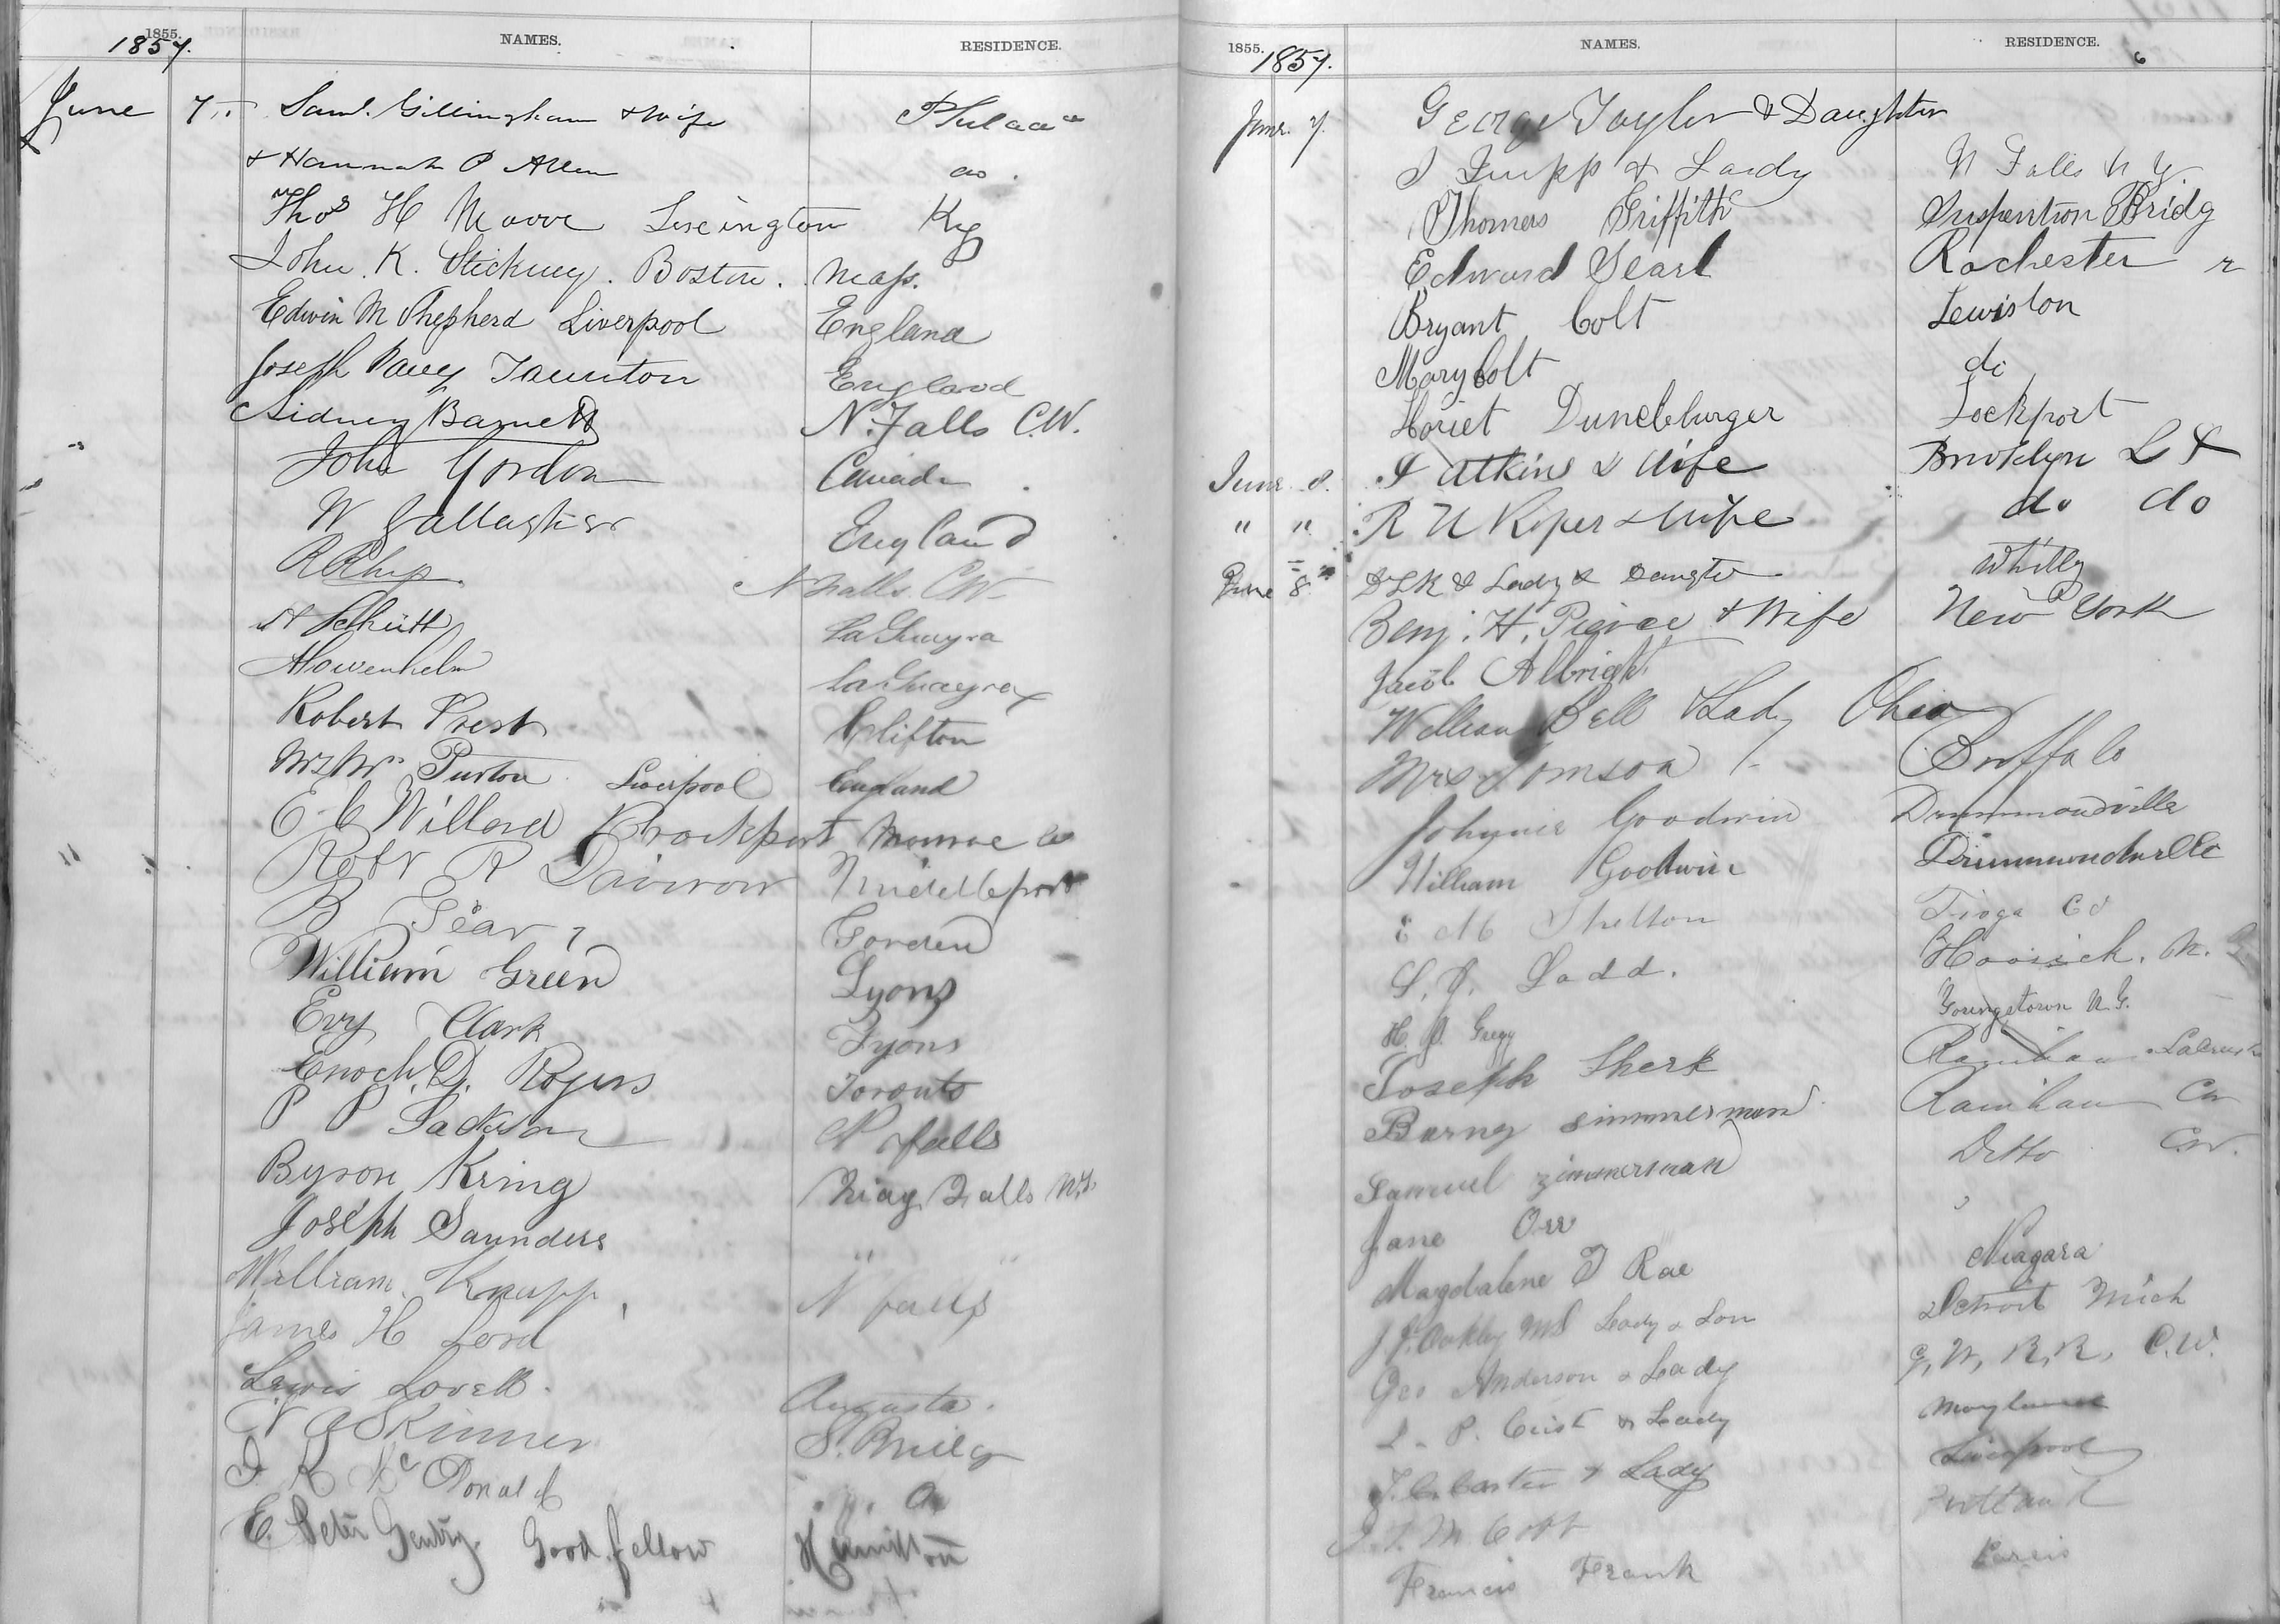 1855. 1857. NAMES. RESIDENCE.
June 7 Saml. Gillingham & Wife Philada
& Hannah P Allen do.
Thos H Moore Lexington Ky
John K. Stickney. Boston. Mass.
Edwin M Shepherd Liverpool England
Joseph Pavey Taunton England
Sidney Barnett N. Falls C.W.
John Gordon Canada
W Gallagher England
N Falls CW
H Schütt LaGuayra
LaGuayra
Robert Prest Clifton
Purton Liverpool England
E C Willard Brockport Monroe Co
Robt R Middleport
B Gear
William Green Lyons
Evy Clark Lyons
Enoch D. Rogers Toronto
P P Jackson N falls
Byron Kring Niag Falls N.Y.
Joseph Saunders " "
William Knapp N falls
James H Lord
Lewis Lovell Augusta.
N A Skinner S. Bridg
J K Mc Donald
E. Peter Gentry. Good fellow Hamilton
1855. 1857. NAMES. RESIDENCE. 6
June 7. George Taylor & Daughter
Lady N Falls N Y
Thomers Griffith Suspention Bridg
Edward Searl Rochester
Bryant Colt Lewiston
Mary Colt do
Horiet Lockport
June 8. Atkins & Wife Brooklyn L I
" " R U Roper & Wife do do
June 8 & Lady & Whitby
Benj. H. Pierce & Wife New York
Jacob Albright
William Bell & Lady Ohio
Mrs Tomson Buffalo
Johynie Goodwin Drummondville
William Goodwin Drummondville
E M Shelton Tioga Co
S. J. Ladd. Hoosick. N.
H. J. Gregg Youngstown N.Y.
Joseph Sherk
Barny simmerman Rainham CW
Samuel zimmerman Ditto C.W.
Jane Orr
Magdalene T Rae Niagara
J. J. Oakley MD Lady & Son Detroit Mich
Geo Anderson & Lady G. W. R. R. C.W.
L. P. & Lady Maryland
& Lady Liverpool
Francis Frank Paris